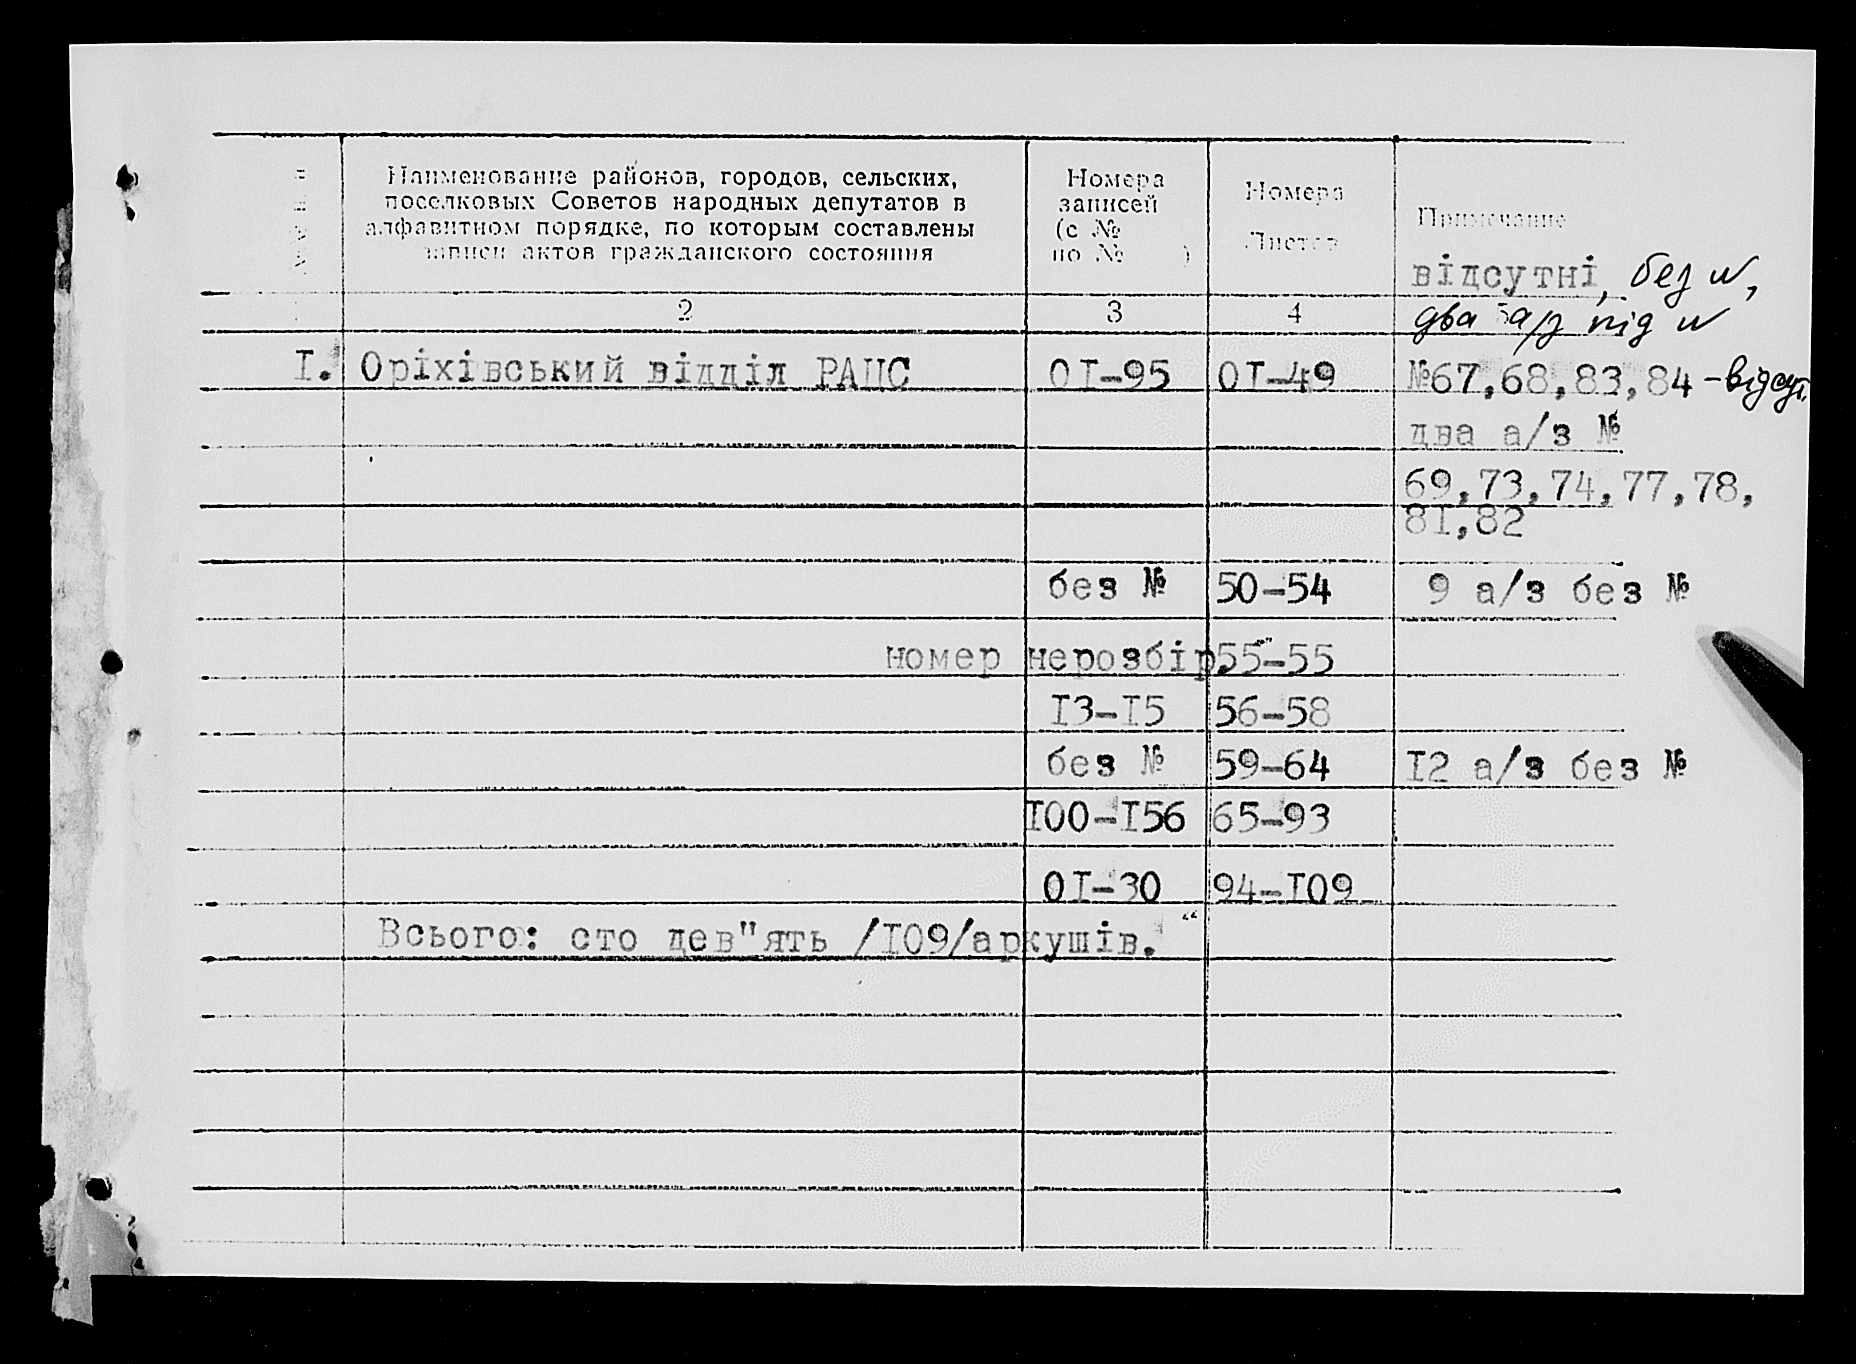 Наименование районов, городов, сельских,
поселковых Советов народных депутатов в
алфавитном порядке, по которым составлены
записи актов гражданского состояния
Номера
записей
(с №
по № )
Номера
Листов
Примечание
відсутні, без №,
2 3 4 5
два а/з під №
I. Оріхівський відділ РАЦС 0I-95 0I-49 №67,68,83,84 -відсут.
два а/з №
69,73,74,77,78,
8I,82
без № 50-54 9 а/з без №
номер нерозбір. 55-55
I3-I5 56-58
без № 59-64 I2 а/з без №
I00-I56 65-93
0I-30 94-I09
Всього: сто дев"ять /I09/аркушів.